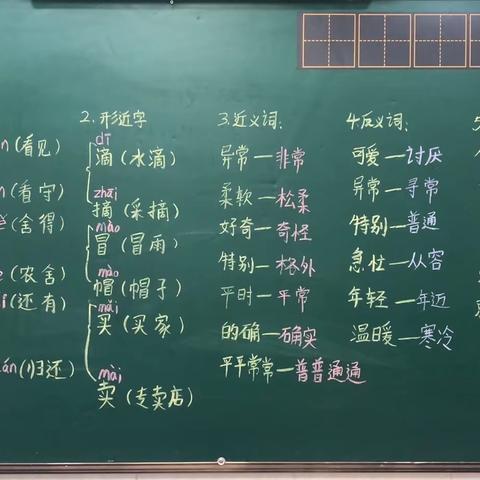 n (看见)
n (看守)
(舍得)
(农舍)
i (还有)
án (归还)
2. 形近字
dī
滴 (水滴)
zhāi
摘 (采摘)
mào
冒 (冒雨)
mào
帽 (帽子)
mǎi
买 (买家)
mài
卖 (专卖店)
3.近义词:
异常—非常
柔软—松柔
好奇—奇怪
特别—格外
平时—平常
的确—确实
平平常常—普普通通
4.反义词:
可爱—讨厌
异常—寻常
特别—普通
急忙—从容
年轻—年迈
温暖—寒冷